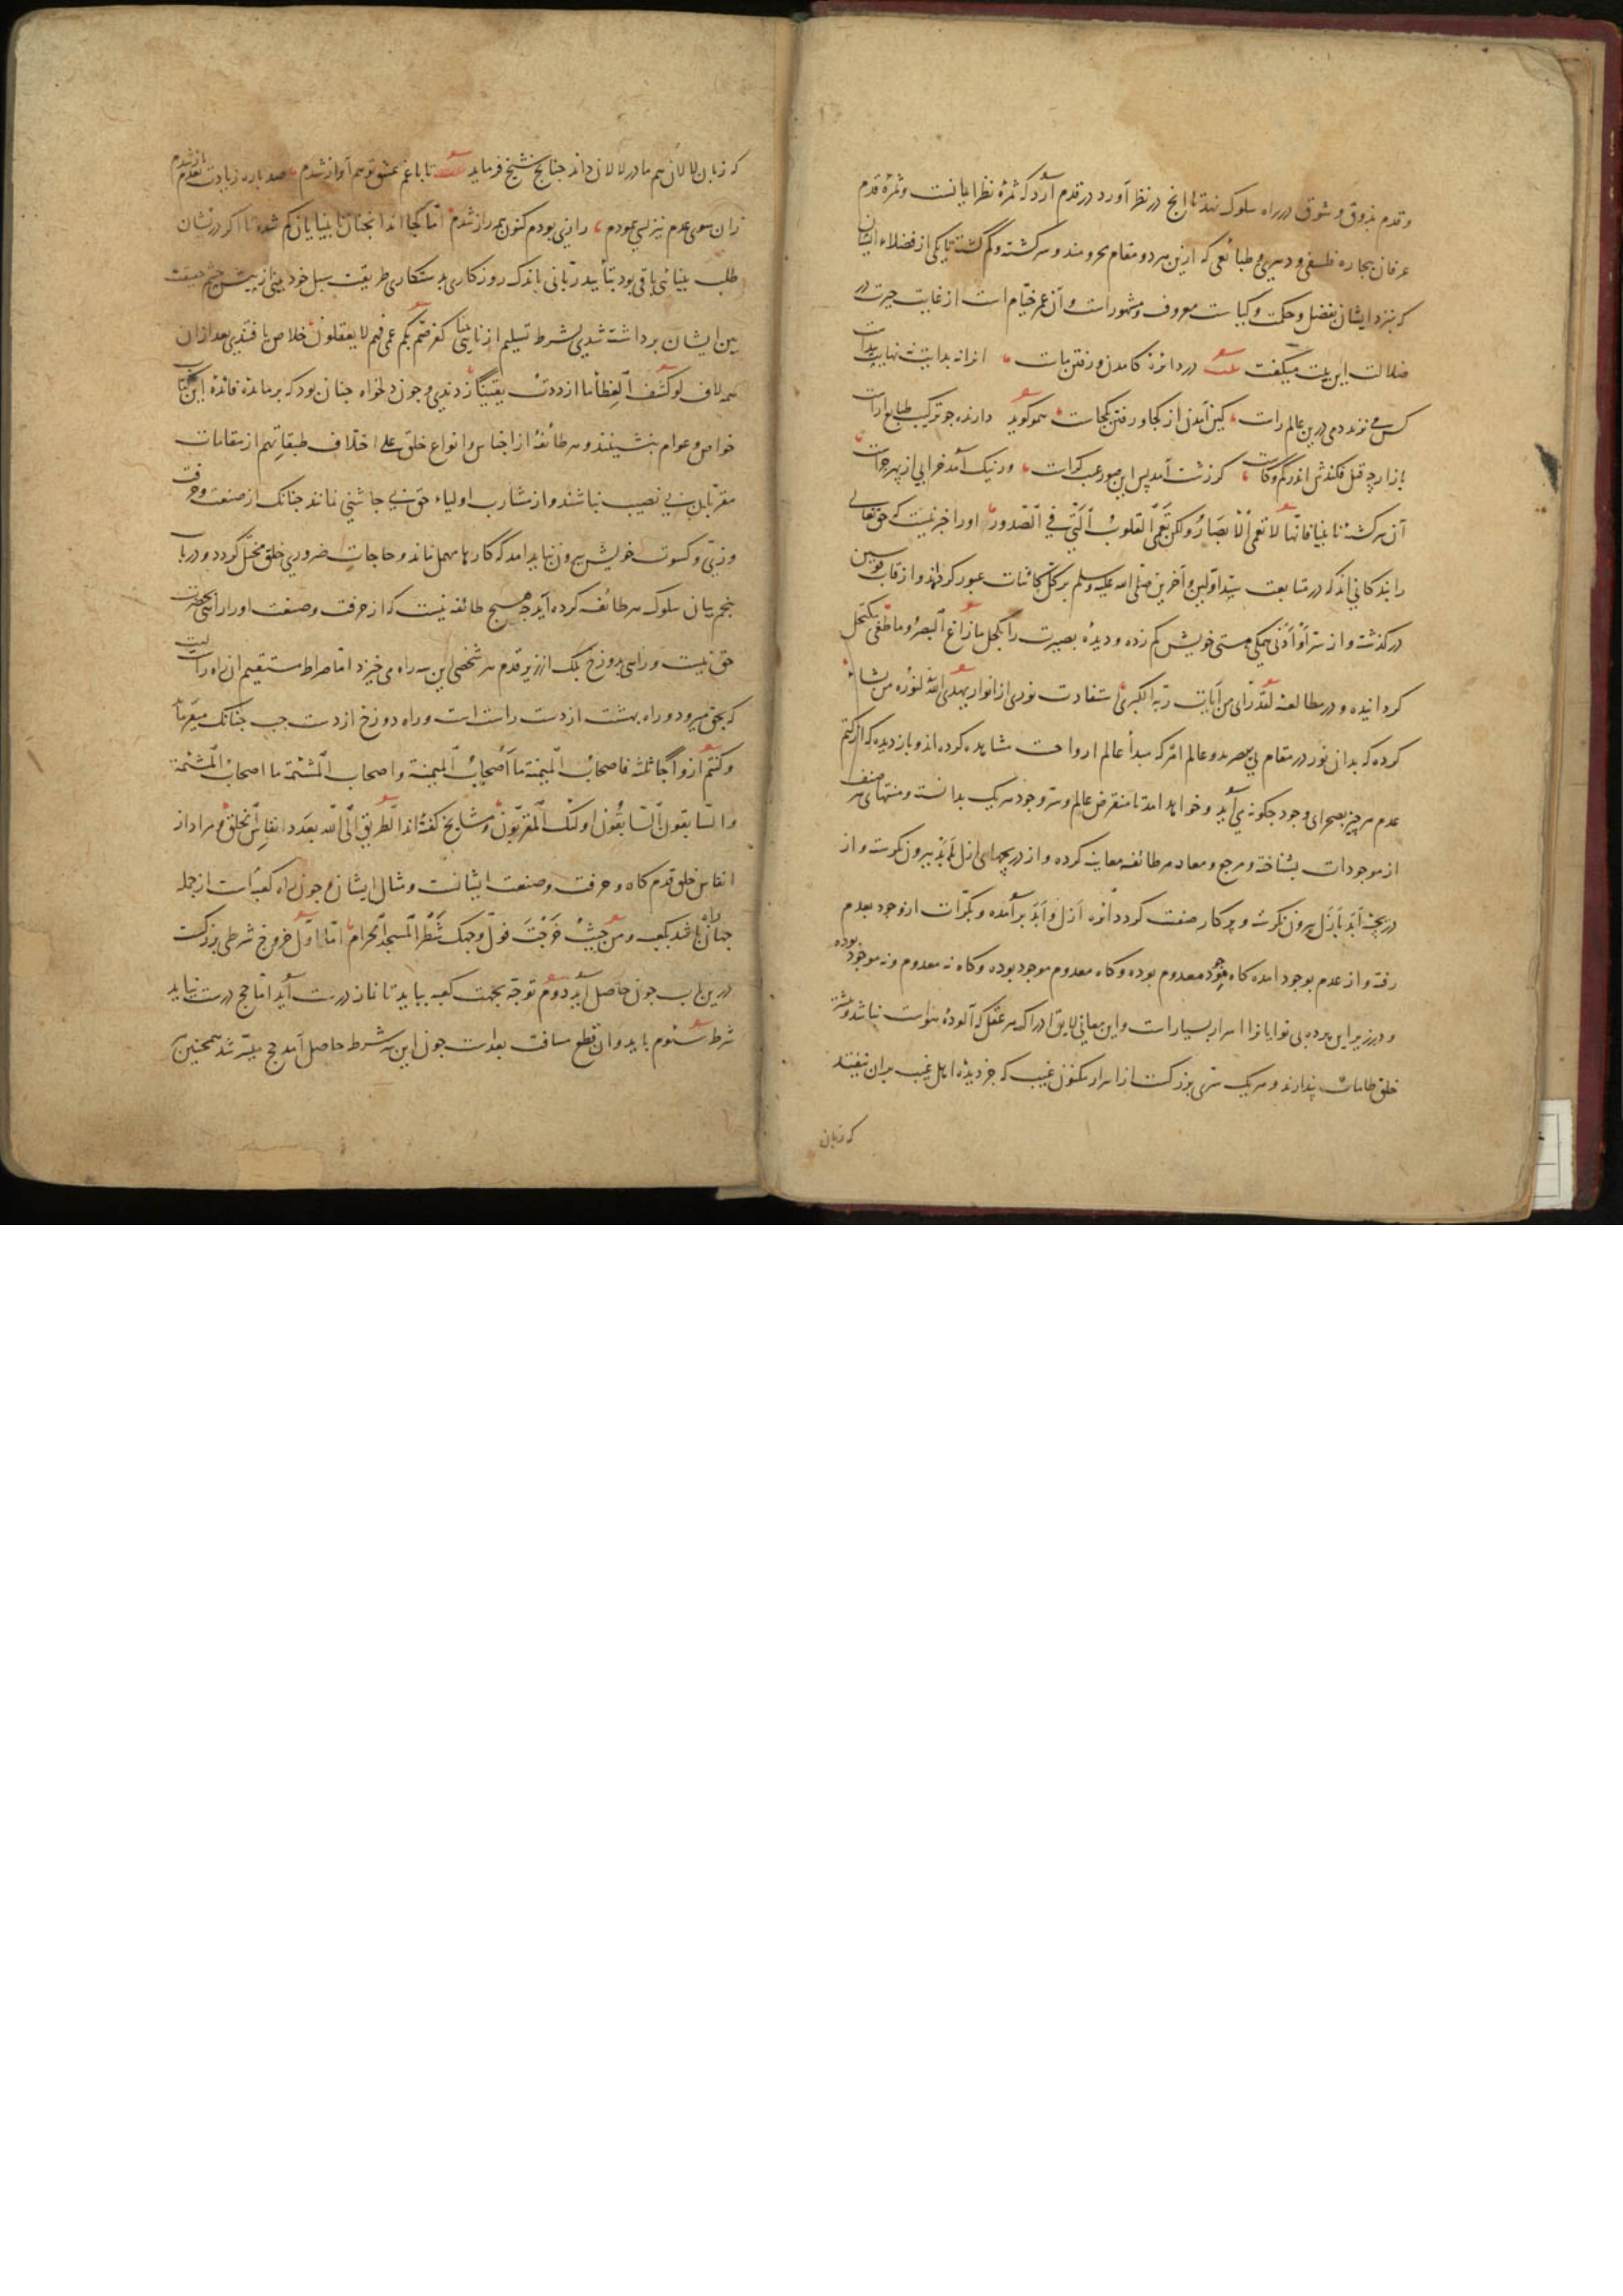 و قدم بذوق و شوق در راه سلوک نهد تا انچ در نظر آورد در قدم آرد که ثمرهٔ نظر ایمانست و ثمرهٔ قدم
عرفان بیجاره فلسفی و دهری و طبائعی که ازین هر دو مقام محرومند و سرکشته و کم کشته تا یکی از فضلاء ایشان
که بنزد ایشان بفضل و حکمت و کیاست معروف و مشهورست و آن عمر خیّام است از غایت حیرت در
ضلالت این بیت میکفت در دائرهٔ کامدن و رفتن ماست انرا نه بدایت نه نهایت پیداست
کس می نزند دمی درین عالم راست کین آمدن از کجا و رفتن بکجاست همو کوید دارنده جو ترکیب طبایع اراست
باز از چه قبل فکندش اندر کم و کاست کر زشت آمد پس این صور عیب کراست ور نیک آمد خرابی از بهر چراست
آن سرکشته نابینا فانّها لا تعمی الابصار ولکن تعمی القلوب الّتی فی الصّدور اورا خبر نیست که حق تعالی
را بندکانی اند که در متابعت سیّد اوّلین و آخرین صلّی الله علیه وسلم بر کلّ کائنات عبور کرده‌اند و از قاب قوسین
درکذشته و از سرّ اَوْ اَدْنی همکی هستی خویش کم زده و دیدهٔ بصیرت را بکحل ما زاغ البصر و ما طغی مکتحل
کردانیده و در مطالعهٔ لقد رای من آیات ربه الکبری استفادت نوری از انوار یهدی الله لنوره من یشاء
کرده که بدان نور در مقام بی یبصر بدو عالم امر که مبدأ عالم ارواحست مشاهده کرده اند و باز دیده که از کتم
عدم هر چیز بصحرای وجود جکونه می آید و خواهد امد تا منقرض عالم و سرّ وجود هریک بدانسته و منتهای هر صنف
از موجودات بشناخته و مرجع و معاد هر طائفه معاینه کرده و از دریچهای ازل بابد بیرون نکرسته و از
دریچهٔ اَبَد بازل بیرون نکرسته و پرکار صفت کرد دائرهٔ اَزَل و اَبَد برآمده و بکرّات از وجود بعدم
رفته و از عدم بوجود امده کاه موجود معدوم بوده و کاه معدوم موجود بوده و کاه نه معدوم و نه موجود بوده
و در زیر این پرده بی نوایانرا اسرار بسیارست و این معانی لایق ادراک هر عقل که آلودهٔ هواست نباشد و بیشتر
خلق طامات پندارند و هریک سرّی بزرکست از اسرار مکنون غیب که جز دیدهٔ اهل غیب بران نیفتد
که زبان
که زبان لالان هم مادر لالان داند جنانج شیخ فرماید تا با غم عشق تو هم آواز شدم صد باره زیادت بعدم باز شدم
زان سوی عدم نیز بسی پیمودم رازی بودم کنون همه راز شدم امّا کجا اند انجنان نابینایان کم شده تا اکر در نشان
طلب بینائی باقی بود بتأیید ربّانی باندک روزکاری بدستکاری طریقت سبل خود بینی از پیش چشم حقیقت
بین ایشان برداشته شدی بشرط تسلیم از نابینائی کفر صُمّ بُکم عمی فهم لا یعقلون خلاص یافتندی بعد ازان
همه لاف لو کشف الغطأ ما ازددتُ یقیناً زدندی و جون دلخواه جنان بود که بر مائدهٔ فائدهٔ این کتاب
خواص و عوام بنشینند و هر طائفهٔ از اجناس و انواع خلق علی اختلاف طبقاتهم از مقامات
مقرّبان بی نصیب نباشند و از مشارب اولیاء حق بی جاشنی نمانند جنانک از صنعت و حرفت
و زیّ و کسوت خویش بیرون نباید امد که کارها مهمل ماند و حاجات ضروری خلق مختلّ کردد و در باب
پنجم بیان سلوک هر طائفه کرده آید جه هیج طائفه نیست که از حرفت و صنعت او راهی بحضرت
حق نیست و راهی بدوزخ بلک از زیر قدم هر شخصی این سه راه می خیزد امّا صراط مستقیم ان راه راست
که بحق میرود و راه بهشت از دست راست است و راه دوزخ از دست جب جنانک میفرماید
و کنتم ازواجاً ثلثه فاصحاب المیمنة ما أصحاب المیمنة و اصحاب المشئمة ما اصحاب المشئمة
و السّابقون السّابقون اولئک المقرّبون و مشایخ کفته اند الطریق الی الله بعدد انفاس الخلق و مراد از
انفاس خلق قدم کاه و حرفت و صنعت ایشانست و مثال ایشان جون راه کعبه است از جمله
جهان راه باشد بکعبه و من حیث خرجت فولّ وجهک شطر المسجد الحرام امّا اوّل خروج شرطی بزرکست
درین باب جون حاصل آید دوم توجّه بجهت کعبه بباید تا نماز درست آید امّا حج درست نیاید
شرط سئوم باید و ان قطع مسافت بعدست جون این سه شرط حاصل آمد حج میسّر شد همجنین